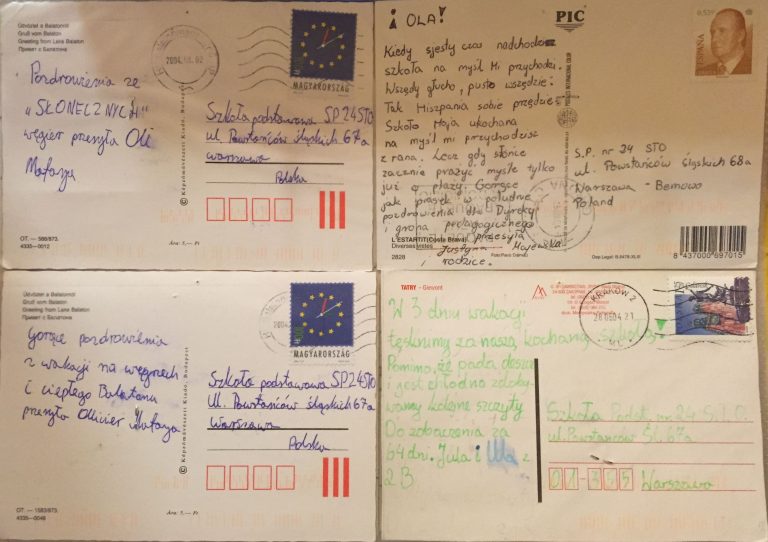 Üdvözlet a Balatonról
Gruß vom Balaton
Greeting from Lake Balaton
Привет с Балатона
2004.
MAGYARORSZÁG
Pozdrowienia ze
„SŁONECZNYCH"
węgier przesyła Oli
Matazya
© Képzőművészeti Kiadó, Budapest
Szkoła podstawowa SP24STO
ul. Powstańców śląskich 67a
warszawa
Polska
OT. — 566/973.
4335-0012
Ára: 5,— Ft
i OLA!
PIC
0,53€
ESPAÑA
Kiedy sjesty czas nadchodzi
szkoła na myśl Mi przychodzi.
Wszędy głucho, pusto wszędzie:
Tak Hiszpania sobie przędzie.
Szkoło Moja ukochana
na myśl mi przychodzisz
z rana. Lecz gdy słońce
zacznie prażyć myślę tylko
już o plaży. Gorące
jak piasek w południe
pozdrowienia dla Dyrekcji
i grona pedagogicznego
przesyła
Justyna Majewska
i rodzice.
S.P. nr 24 STO
ul. Powstańców Śląskich 68a
Warszawa - Bemowo
Poland
L'ESTARTIT (Costa Brava)
Diverses vistes
2828
8 437000 697015
Üdvözlet a Balatonról
Gruß vom Balaton
Greeting from Lake Balaton
Привет с Балатона
2004.
MAGYARORSZÁG
Gorące pozdrowienia
z wakacji na węgrzech
i ciepłego Balatonu
przesyła Olivier Matazya
© Képzőművészeti Kiadó, Budapest
Szkoła podstawowa SP24STO
Ul. Powstańców śląskich 67a
Warszawa
Polska
OT. — 1583/973.
4335-0048
Ára: 5,— Ft
TATRY - Giewont
KRAKÓW 2
28.06.04.21
W 3 dniu wakacji
tęsknimy za naszą kochaną szkołą.
Pomimo, że pada deszcz
i jest chłodno zdoby-
wamy kolejne szczyty
Do zobaczenia za
64 dni. Jula i Ula z
2B
Szkoła Podst. nr 24 S.T.O.
ul. Powstańców Śl. 67a
01-355 Warszawa